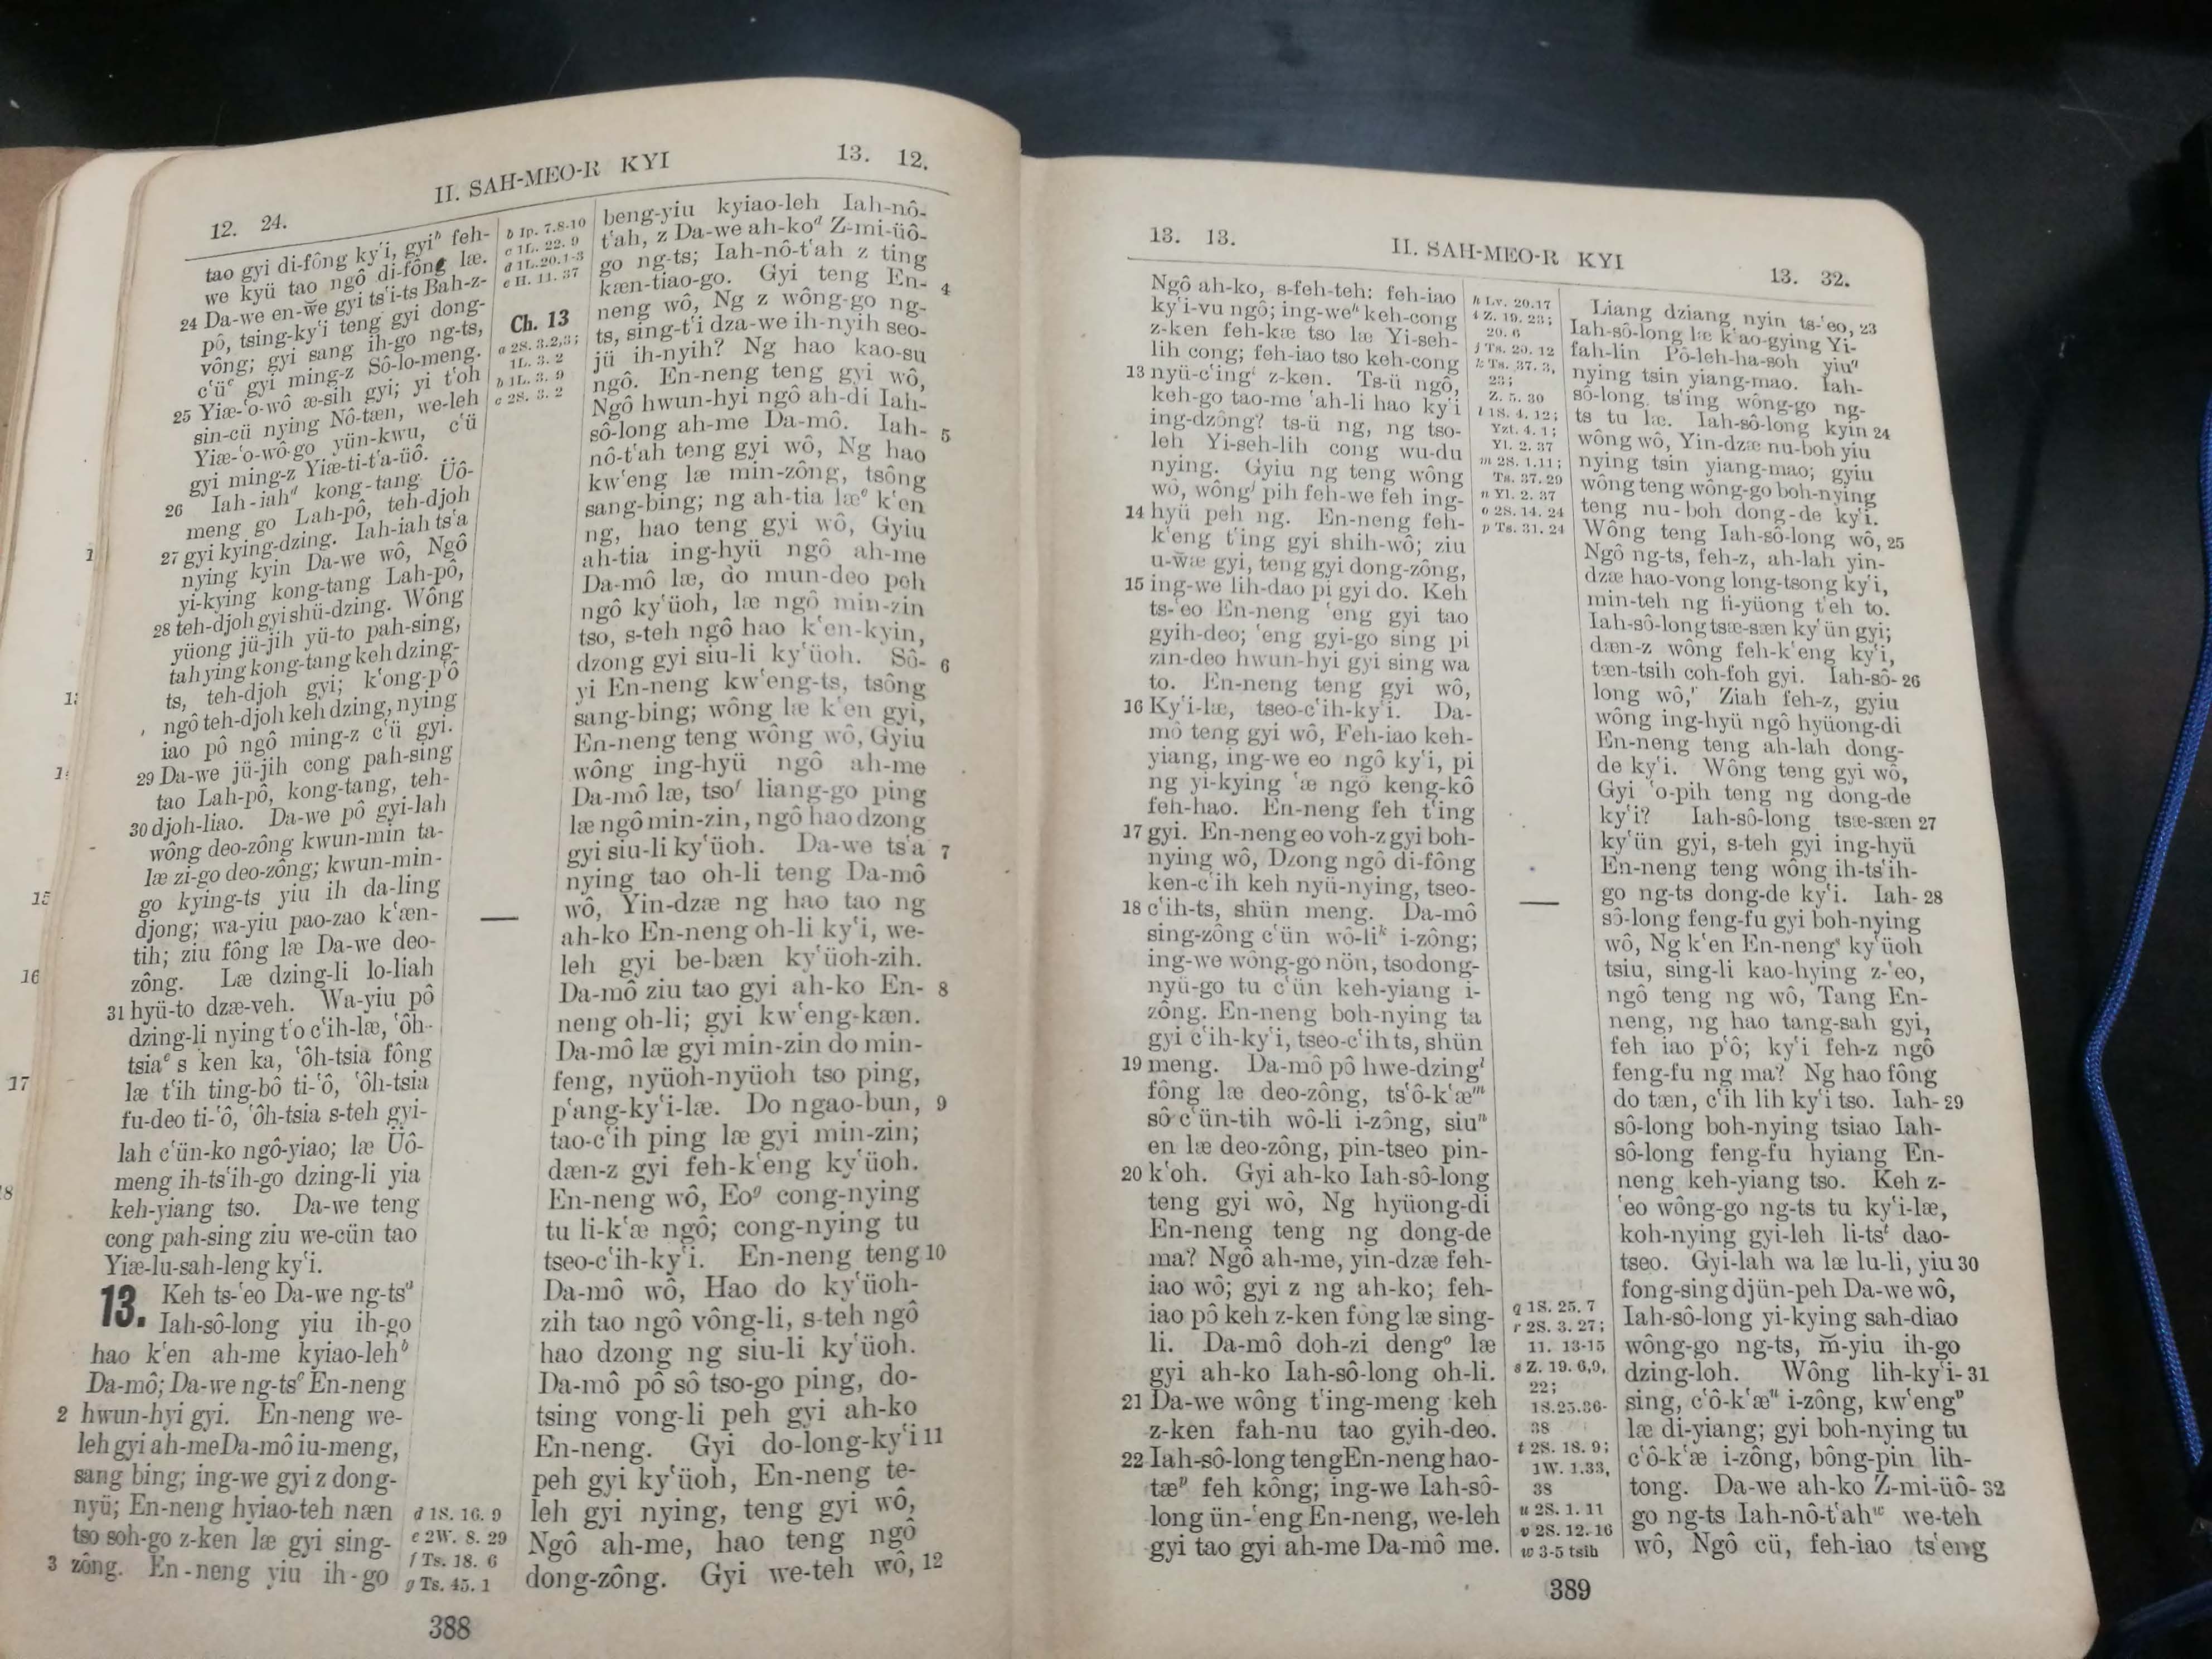 II. SAH-MEO-R KYI
12. 24.
13. 12.
tao gyi di-fông kyʻi, gyiᵇ feh-
we kyü tao ngô di-fông læ.
24 Da-we en-w̆e gyi tsʻi-ts Bah-z-
pô, tsing-kyʻi teng gyi dong-
vông; gyi sang ih-go ng-ts,
cʻüᶜ gyi ming-z Sô-lo-meng.
25 Yiæ-ʻo-wô æ-sih gyi; yi tʻoh
sin-cü nying Nô-tæn, we-leh
Yiæ-ʻo-wô-go yün-kwu, cʻü
gyi ming-z Yiæ-ti-tʻa-üô.
26 Iah-iahᵈ kong-tang Üô-
meng go Lah-pô, teh-djoh
27 gyi kying-dzing. Iah-iah tsʻa
nying kyin Da-we wô, Ngô
yi-kying kong-tang Lah-pô,
28 teh-djoh gyi shü-dzing. Wông
yüong jü-jih yü-to pah-sing,
tah ying kong-tang keh dzing-
ts, teh-djoh gyi; kʻong-pʻô
ngô teh-djoh keh dzing, nying
iao pô ngô ming-z cʻü gyi.
29 Da-we jü-jih cong pah-sing
tao Lah-pô, kong-tang, teh-
30 djoh-liao. Da-we pô gyi-lah
wông deo-zông kwun-min ta-
læ zi-go deo-zông; kwun-min-
go kying-ts yiu ih da-ling
djong; wa-yiu pao-zao kʻæn-
tih; ziu fông læ Da-we deo-
zông. Læ dzing-li lo-liah
31 hyü-to dzæ-veh. Wa-yiu pô
dzing-li nying tʻo cʻih-læ, ʻôh-
tsiaᵉ s ken ka, ʻôh-tsia fông
læ tʻih ting-bô ti-ʻô, ʻôh-tsia
fu-deo ti-ʻô, ʻôh-tsia s-teh gyi-
lah cʻün-ko ngô-yiao; læ Üô-
meng ih-tsʻih-go dzing-li yia
keh-yiang tso. Da-we teng
cong pah-sing ziu we-cün tao
Yiæ-lu-sah-leng kyʻi.
13. Keh ts-ʻeo Da-we ng-tsᵃ
Iah-sô-long yiu ih-go
hao kʻen ah-me kyiao-lehᵇ
Da-mô; Da-we ng-tsᶜ En-neng
2 hwun-hyi gyi. En-neng we-
leh gyi ah-me Da-mô iu-meng,
sang bing; ing-we gyi z dong-
nyü; En-neng hyiao-teh næn
tso soh-go z-ken læ gyi sing-
3 zông. En-neng yiu ih-go
b Ip. 7.8-10
c 1L. 22. 9
d 1L.20.1-3
e H. 11. 37
Ch. 13
a 2S. 3.2,3;
1L. 3. 2
b 1L. 3. 9
c 2S. 3. 2
d 1S. 16. 9
e 2W. 8. 29
f Ts. 18. 6
g Ts. 45. 1
beng-yiu kyiao-leh Iah-nô-
tʻah, z Da-we ah-koᵈ Z-mi-üô-
go ng-ts; Iah-nô-tʻah z ting
kæn-tiao-go. Gyi teng En- 4
neng wô, Ng z wông-go ng-
ts, sing-tʻi dza-we ih-nyih seo-
jü ih-nyih? Ng hao kao-su
ngô. En-neng teng gyi wô,
Ngô hwun-hyi ngô ah-di Iah-
sô-long ah-me Da-mô. Iah- 5
nô-tʻah teng gyi wô, Ng hao
kwʻeng læ min-zông, tsông
sang-bing; ng ah-tia læᵉ kʻen
ng, hao teng gyi wô, Gyiu
ah-tia ing-hyü ngô ah-me
Da-mô læ, do mun-deo peh
ngô kyʻüoh, læ ngô min-zin
tso, s-teh ngô hao kʻen-kyin,
dzong gyi siu-li kyʻüoh. Sô- 6
yi En-neng kwʻeng-ts, tsông
sang-bing; wông læ kʻen gyi,
En-neng teng wông wô, Gyiu
wông ing-hyü ngô ah-me
Da-mô læ, tsoᶠ liang-go ping
læ ngô min-zin, ngô hao dzong
gyi siu-li kyʻüoh. Da-we tsʻa 7
nying tao oh-li teng Da-mô
wô, Yin-dzæ ng hao tao ng
ah-ko En-neng oh-li kyʻi, we-
leh gyi be-bæn kyʻüoh-zih.
Da-mô ziu tao gyi ah-ko En- 8
neng oh-li; gyi kwʻeng-kæn.
Da-mô læ gyi min-zin do min-
feng, nyüoh-nyüoh tso ping,
pʻang-kyʻi-læ. Do ngao-bun, 9
tao-cʻih ping læ gyi min-zin;
dæn-z gyi feh-kʻeng kyʻüoh.
En-neng wô, Eoᵍ cong-nying
tu li-kʻæ ngô; cong-nying tu
tseo-cʻih-kyʻi. En-neng teng 10
Da-mô wô, Hao do kyʻüoh-
zih tao ngô vông-li, s-teh ngô
hao dzong ng siu-li kyʻüoh.
Da-mô pô sô tso-go ping, do-
tsing vong-li peh gyi ah-ko
En-neng. Gyi do-long-kyʻi 11
peh gyi kyʻüoh, En-neng te-
leh gyi nying, teng gyi wô,
Ngô ah-me, hao teng ngô
dong-zông. Gyi we-teh wô, 12
388
13. 13.
II. SAH-MEO-R KYI
13. 32.
Ngô ah-ko, s-feh-teh: feh-iao
kyʻi-vu ngô; ing-weʰ keh-cong
z-ken feh-kæ tso læ Yi-seh-
lih cong; feh-iao tso keh-cong
13 nyü-cʻingⁱ z-ken. Ts-ü ngô,
keh-go tao-me ʻah-li hao kyʻi
ing-dzông? ts-ü ng, ng tso-
leh Yi-seh-lih cong wu-du
nying. Gyiu ng teng wông
wô, wôngʲ pih feh-we feh ing-
14 hyü peh ng. En-neng feh-
kʻeng tʻing gyi shih-wô; ziu
u-w̆æ gyi, teng gyi dong-zông,
15 ing-we lih-dao pi gyi do. Keh
ts-ʻeo En-neng ʻeng gyi tao
gyih-deo; ʻeng gyi-go sing pi
zin-deo hwun-hyi gyi sing wa
to. En-neng teng gyi wô,
16 Kyʻi-læ, tseo-cʻih-kyʻi. Da-
mô teng gyi wô, Feh-iao keh-
yiang, ing-we eo ngô kyʻi, pi
ng yi-kying ʻæ ngô keng-kô
feh-hao. En-neng feh tʻing
17 gyi. En-neng eo voh-z gyi boh-
nying wô, Dzong ngô di-fông
ken-cʻih keh nyü-nying, tseo-
18 cʻih-ts, shün meng. Da-mô
sing-zông cʻün wô-liᵏ i-zông;
ing-we wông-go nön, tso dong-
nyü-go tu cʻün keh-yiang i-
zông. En-neng boh-nying ta
gyi cʻih-kyʻi, tseo-cʻih ts, shün
19 meng. Da-mô pô hwe-dzingˡ
fông læ deo-zông, tsʻô-kʻæᵐ
sô cʻün-tih wô-li i-zông, siuⁿ
en læ deo-zông, pin-tseo pin-
20 kʻoh. Gyi ah-ko Iah-sô-long
teng gyi wô, Ng hyüong-di
En-neng teng ng dong-de
ma? Ngô ah-me, yin-dzæ feh-
iao wô; gyi z ng ah-ko; feh-
iao pô keh z-ken fong læ sing-
li. Da-mô doh-zi dengᵒ læ
gyi ah-ko Iah-sô-long oh-li.
21 Da-we wông tʻing-meng keh
z-ken fah-nu tao gyih-deo.
22 Iah-sô-long teng En-neng hao-
tæᵖ feh kông; ing-we Iah-sô-
long ün-ʻeng En-neng, we-leh
gyi tao gyi ah-me Da-mô me.
h Lv. 20.17
i Z. 19. 23;
20. 6
j Ts. 20. 12
k Ts. 37. 3,
23;
Z. 5. 30
l 1S. 4. 12;
Yzt. 4. 1;
Yl. 2. 37
m 2S. 1.11;
Ts. 37. 29
n Yl. 2. 37
o 2S. 14. 24
p Ts. 31. 24
q 1S. 25. 7
r 2S. 3. 27;
11. 13-15
s Z. 19. 6,9,
22;
1S.25.36-
38
t 2S. 18. 9;
1W. 1.33,
38
u 2S. 1. 11
v 2S. 12. 16
w 3-5 tsih
Liang dziang nyin ts-ʻeo, 23
Iah-sô-long læ kʻao-gying Yi-
fah-lin Pô-leh-ha-soh yiuᵍ
nying tsin yiang-mao. Iah-
sô-long tsʻing wông-go ng-
ts tu læ. Iah-sô-long kyin 24
wông wô, Yin-dzæ nu-boh yiu
nying tsin yiang-mao; gyiu
wông teng wông-go boh-nying
teng nu-boh dong-de kyʻi.
Wông teng Iah-sô-long wô, 25
Ngô ng-ts, feh-z, ah-lah yin-
dzæ hao-vong long-tsong kyʻi,
min-teh ng li-yüong tʻeh to.
Iah-sô-long tsæ-sæn kyʻün gyi;
dæn-z wông feh-kʻeng kyʻi,
tæn-tsih coh-foh gyi. Iah-sô- 26
long wô,ʳ Ziah feh-z, gyiu
wông ing-hyü ngô hyüong-di
En-neng teng ah-lah dong-
de kyʻi. Wông teng gyi wô,
Gyi ʻo-pih teng ng dong-de
kyʻi? Iah-sô-long tsæ-sæn 27
kyʻün gyi, s-teh gyi ing-hyü
En-neng teng wông ih-tsʻih-
go ng-ts dong-de kyʻi. Iah- 28
sô-long feng-fu gyi boh-nying
wô, Ng kʻen En-nengˢ kyʻüoh
tsiu, sing-li kao-hying z-ʻeo,
ngô teng ng wô, Tang En-
neng, ng hao tang-sah gyi,
feh iao pʻô; kyʻi feh-z ngô
feng-fu ng ma? Ng hao fông
do tæn, cʻih lih kyʻi tso. Iah- 29
sô-long boh-nying tsiao Iah-
sô-long feng-fu hyiang En-
neng keh-yiang tso. Keh z-
ʻeo wông-go ng-ts tu kyʻi-læ,
koh-nying gyi-leh li-tsᵗ dao-
tseo. Gyi-lah wa læ lu-li, yiu 30
fong-sing djün-peh Da-we wô,
Iah-sô-long yi-kying sah-diao
wông-go ng-ts, m̆-yiu ih-go
dzing-loh. Wông lih-kyʻi- 31
sing, cʻô-kʻæᵘ i-zông, kwʻengᵛ
læ di-yiang; gyi boh-nying tu
cʻô-kʻæ i-zông, bông-pin lih-
tong. Da-we ah-ko Z-mi-üô- 32
go ng-ts Iah-nô-tʻahʷ we-teh
wô, Ngô cü, feh-iao tsʻeng
389
15
16
17